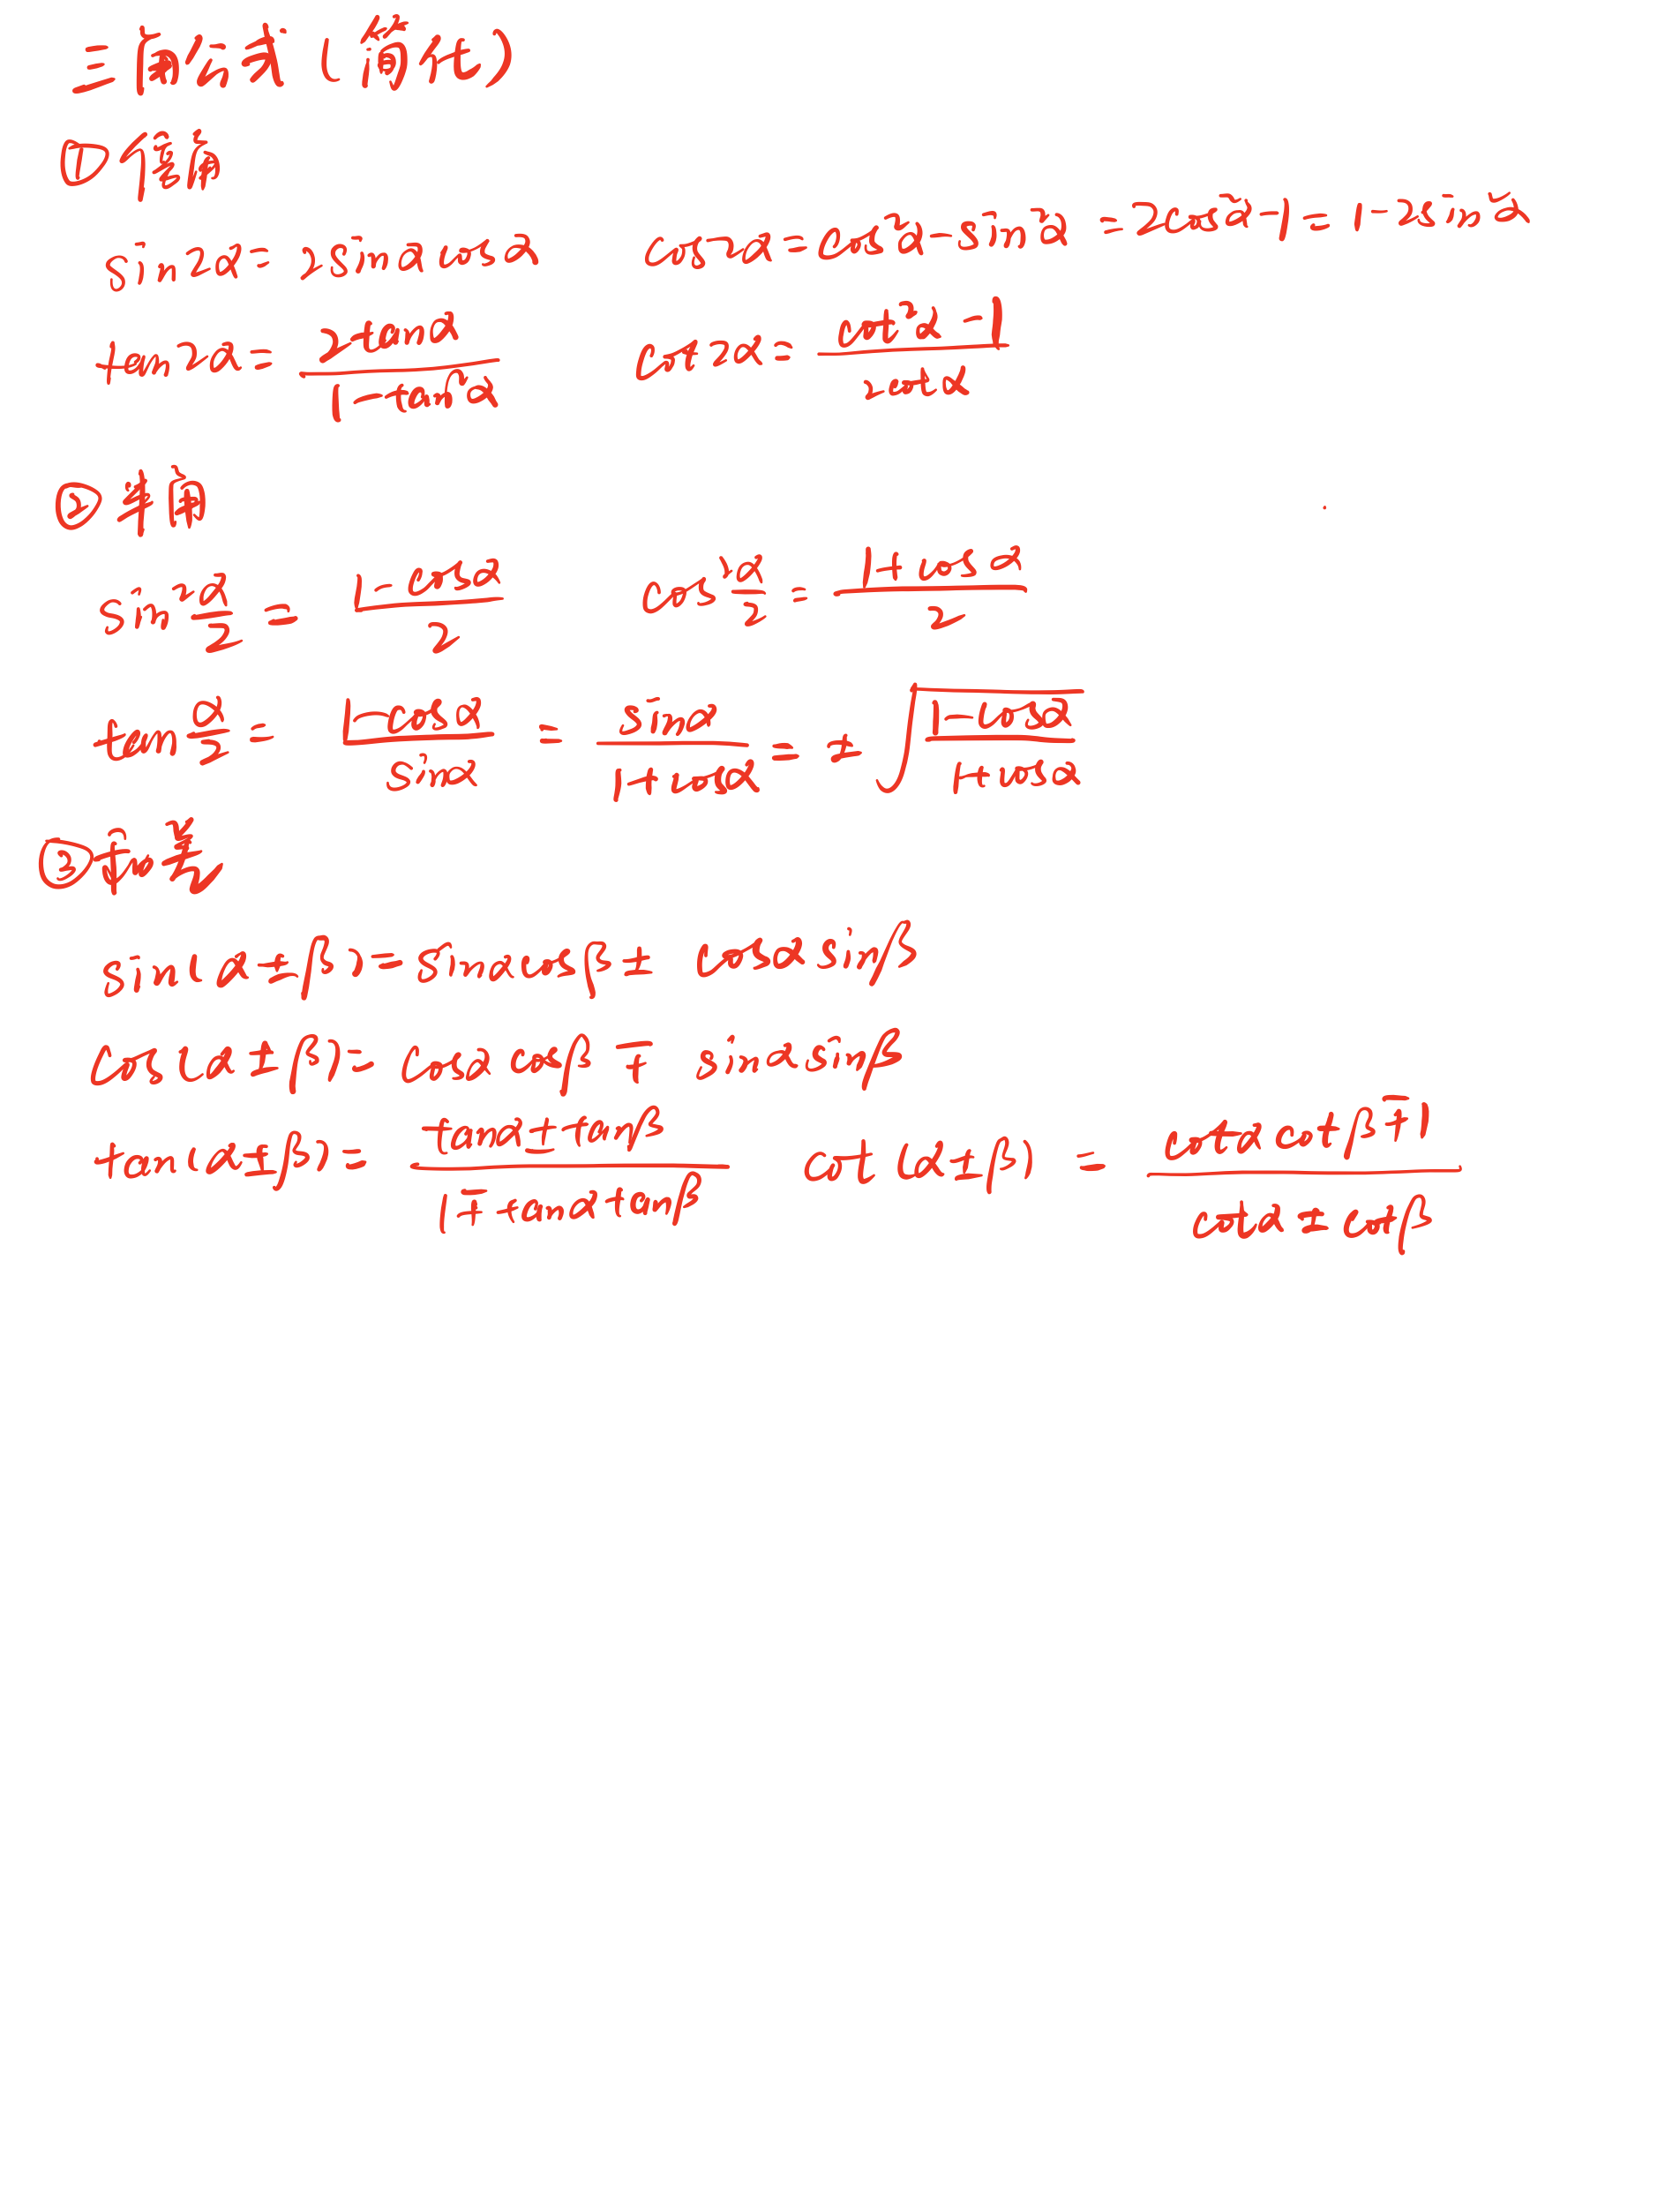 三角公式(简化)
①倍角
sin2α = 2sinαcosα cos2α = cos²α - sin²α = 2cos²α - 1 = 1 - 2sin²α
tan2α = \frac{2tanα}{1 - tan²α} cot2α = \frac{cot²α - 1}{2cotα}
②半角
sin²\frac{α}{2} = \frac{1 - cosα}{2} cos²\frac{α}{2} = \frac{1 + cosα}{2}
tan\frac{α}{2} = \frac{1 - cosα}{sinα} = \frac{sinα}{1 + cosα} = ±\sqrt{\frac{1 - cosα}{1 + cosα}}
③和差
sin(α±β) = sinαcosβ ± cosαsinβ
cos(α±β) = cosαcosβ ∓ sinαsinβ
tan(α±β) = \frac{tanα ± tanβ}{1 ∓ tanαtanβ} cot(α±β) = \frac{cotαcotβ ∓ 1}{cotα ± cotβ}